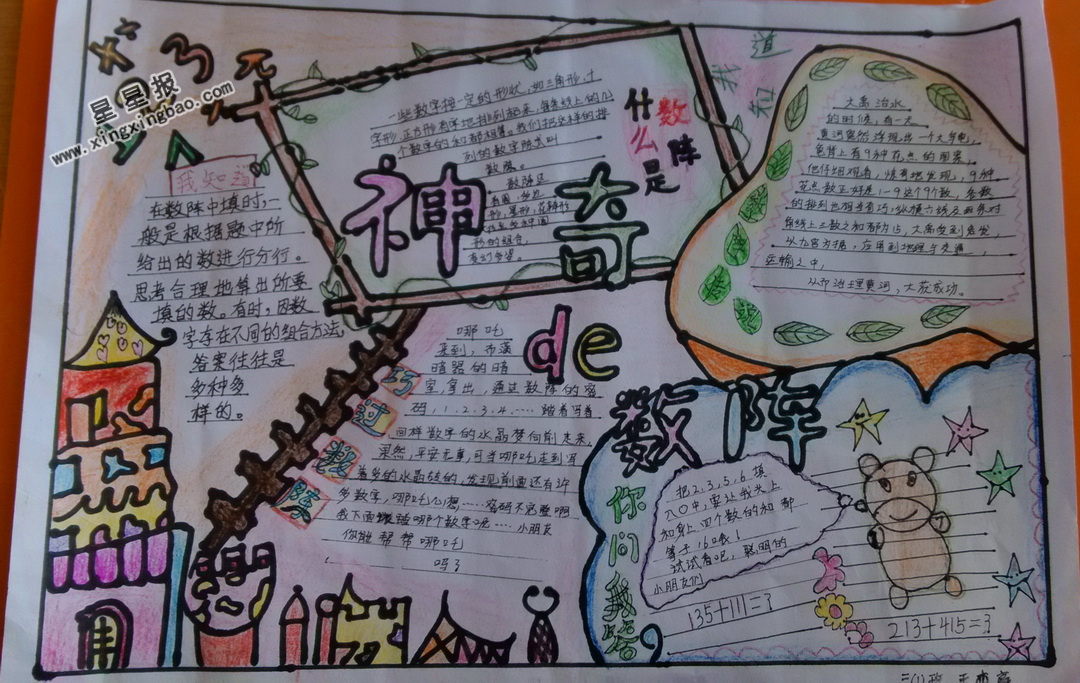 星星报
www.xingxingbao.com
我知道
在数阵中填时,一
般是根据题中所
给出的数进行分行。
思考合理地算出所要
填的数。有时,因数
字存在不同的组合方法,
答案往往是
多种多
样的。
一些数字按一定的形状,如三角形,十
字形,正方形有字地排列起来,每条线上的几
个数字的和都相等。我们把这样的排
列的数字阵式叫
数阵。
什么是数阵
神奇
de
数阵
我知道
大禹治水
的时候,有一天
黄河突然浮现出一个大乌龟,
龟背上有9种花点的图案。
他仔细观看,惊奇地发现,9种
花点数正好是1-9这9个数,各数
的排列也相当奇巧,纵横六线及两条对
角线上三数之和都为15,大禹受到启发,
以九宫为据,应用到地理与交通,
运输之中,
从而治理黄河,大获成功。
巧过数阵
哪吒
来到,布满
暗器的暗
室,拿出,通过数阵的密
码,1.2.3.4……踏着写着
同样数字的水晶
果然,平安无事,可当哪吒走到写
着多的水晶砖的,发现前面还有许
多数字,哪吒心想……密码不完整啊
我下面该踏哪个数字呢……小朋友
你能帮帮哪吒
吗?
你问我答
把2,3,5,6填
入〇中,要让我头上
和身上四个数的和都
等于16
试试看吧,聪明的
小朋友们
135+111=?
213+415=?